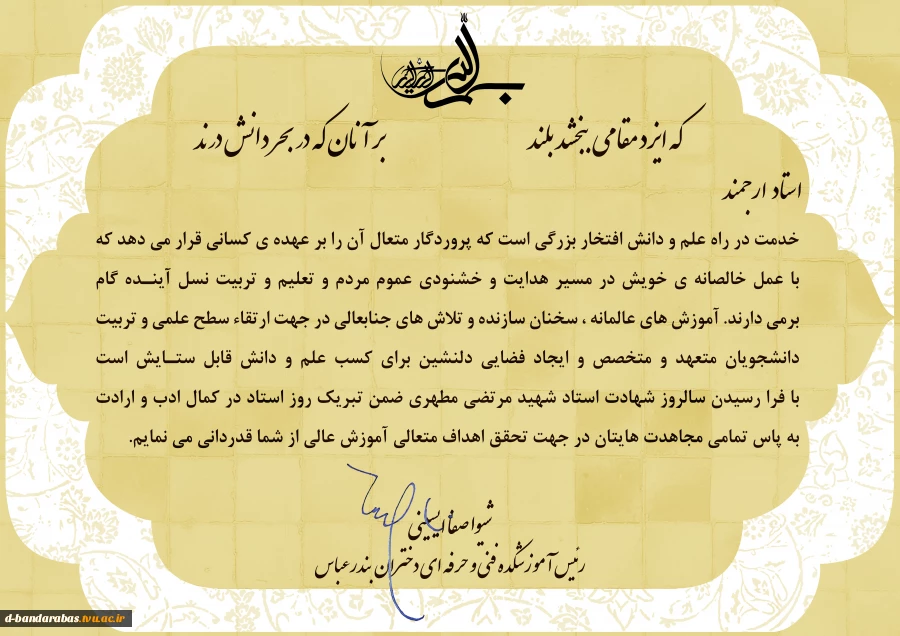 بسم الله الرحمن الرحیم
بر آنان که در بحر دانش درند که ایزد مقامی ببخشد بلند
استاد ارجمند
خدمت در راه علم و دانش افتخار بزرگی است که پروردگار متعال آن را بر عهده ی کسانی قرار می دهد که
با عمل خالصانه ی خویش در مسیر هدایت و خشنودی عموم مردم و تعلیم و تربیت نسل آینــده گام
برمی دارند. آموزش های عالمانه ، سخنان سازنده و تلاش های جنابعالی در جهت ارتقاء سطح علمی و تربیت
دانشجویان متعهد و متخصص و ایجاد فضایی دلنشین برای کسب علم و دانش قابل ستــایش است
با فرا رسیدن سالروز شهادت استاد شهید مرتضی مطهری ضمن تبریک روز استاد در کمال ادب و ارادت
به پاس تمامی مجاهدت هایتان در جهت تحقق اهداف متعالی آموزش عالی از شما قدردانی می نمایم.
شیوا صفا ایسینی
رئیس آموزشکده فنی و حرفه ای دختران بندرعباس
d-bandarabas.tvu.ac.ir